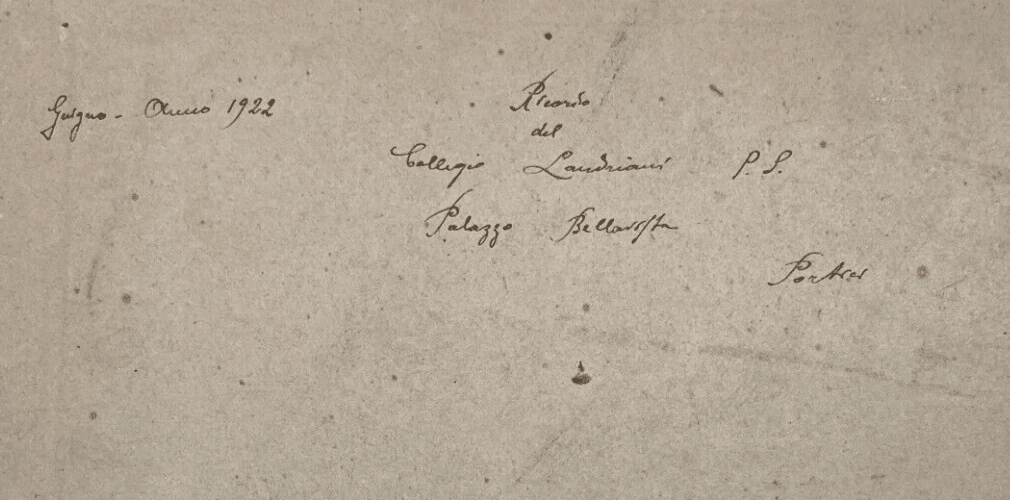 Giugno - Anno 1922
Ricordo
del
Collegio Landriani P. S.
Palazzo Bellavista
Portici